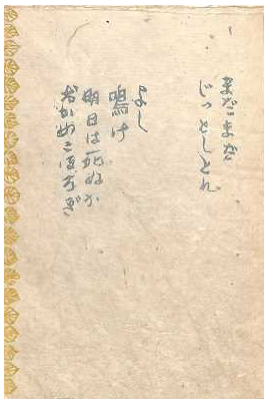 まだまだ
じっとしとれ
よし
鳴け
明日は死ぬか
おかめこほろぎ